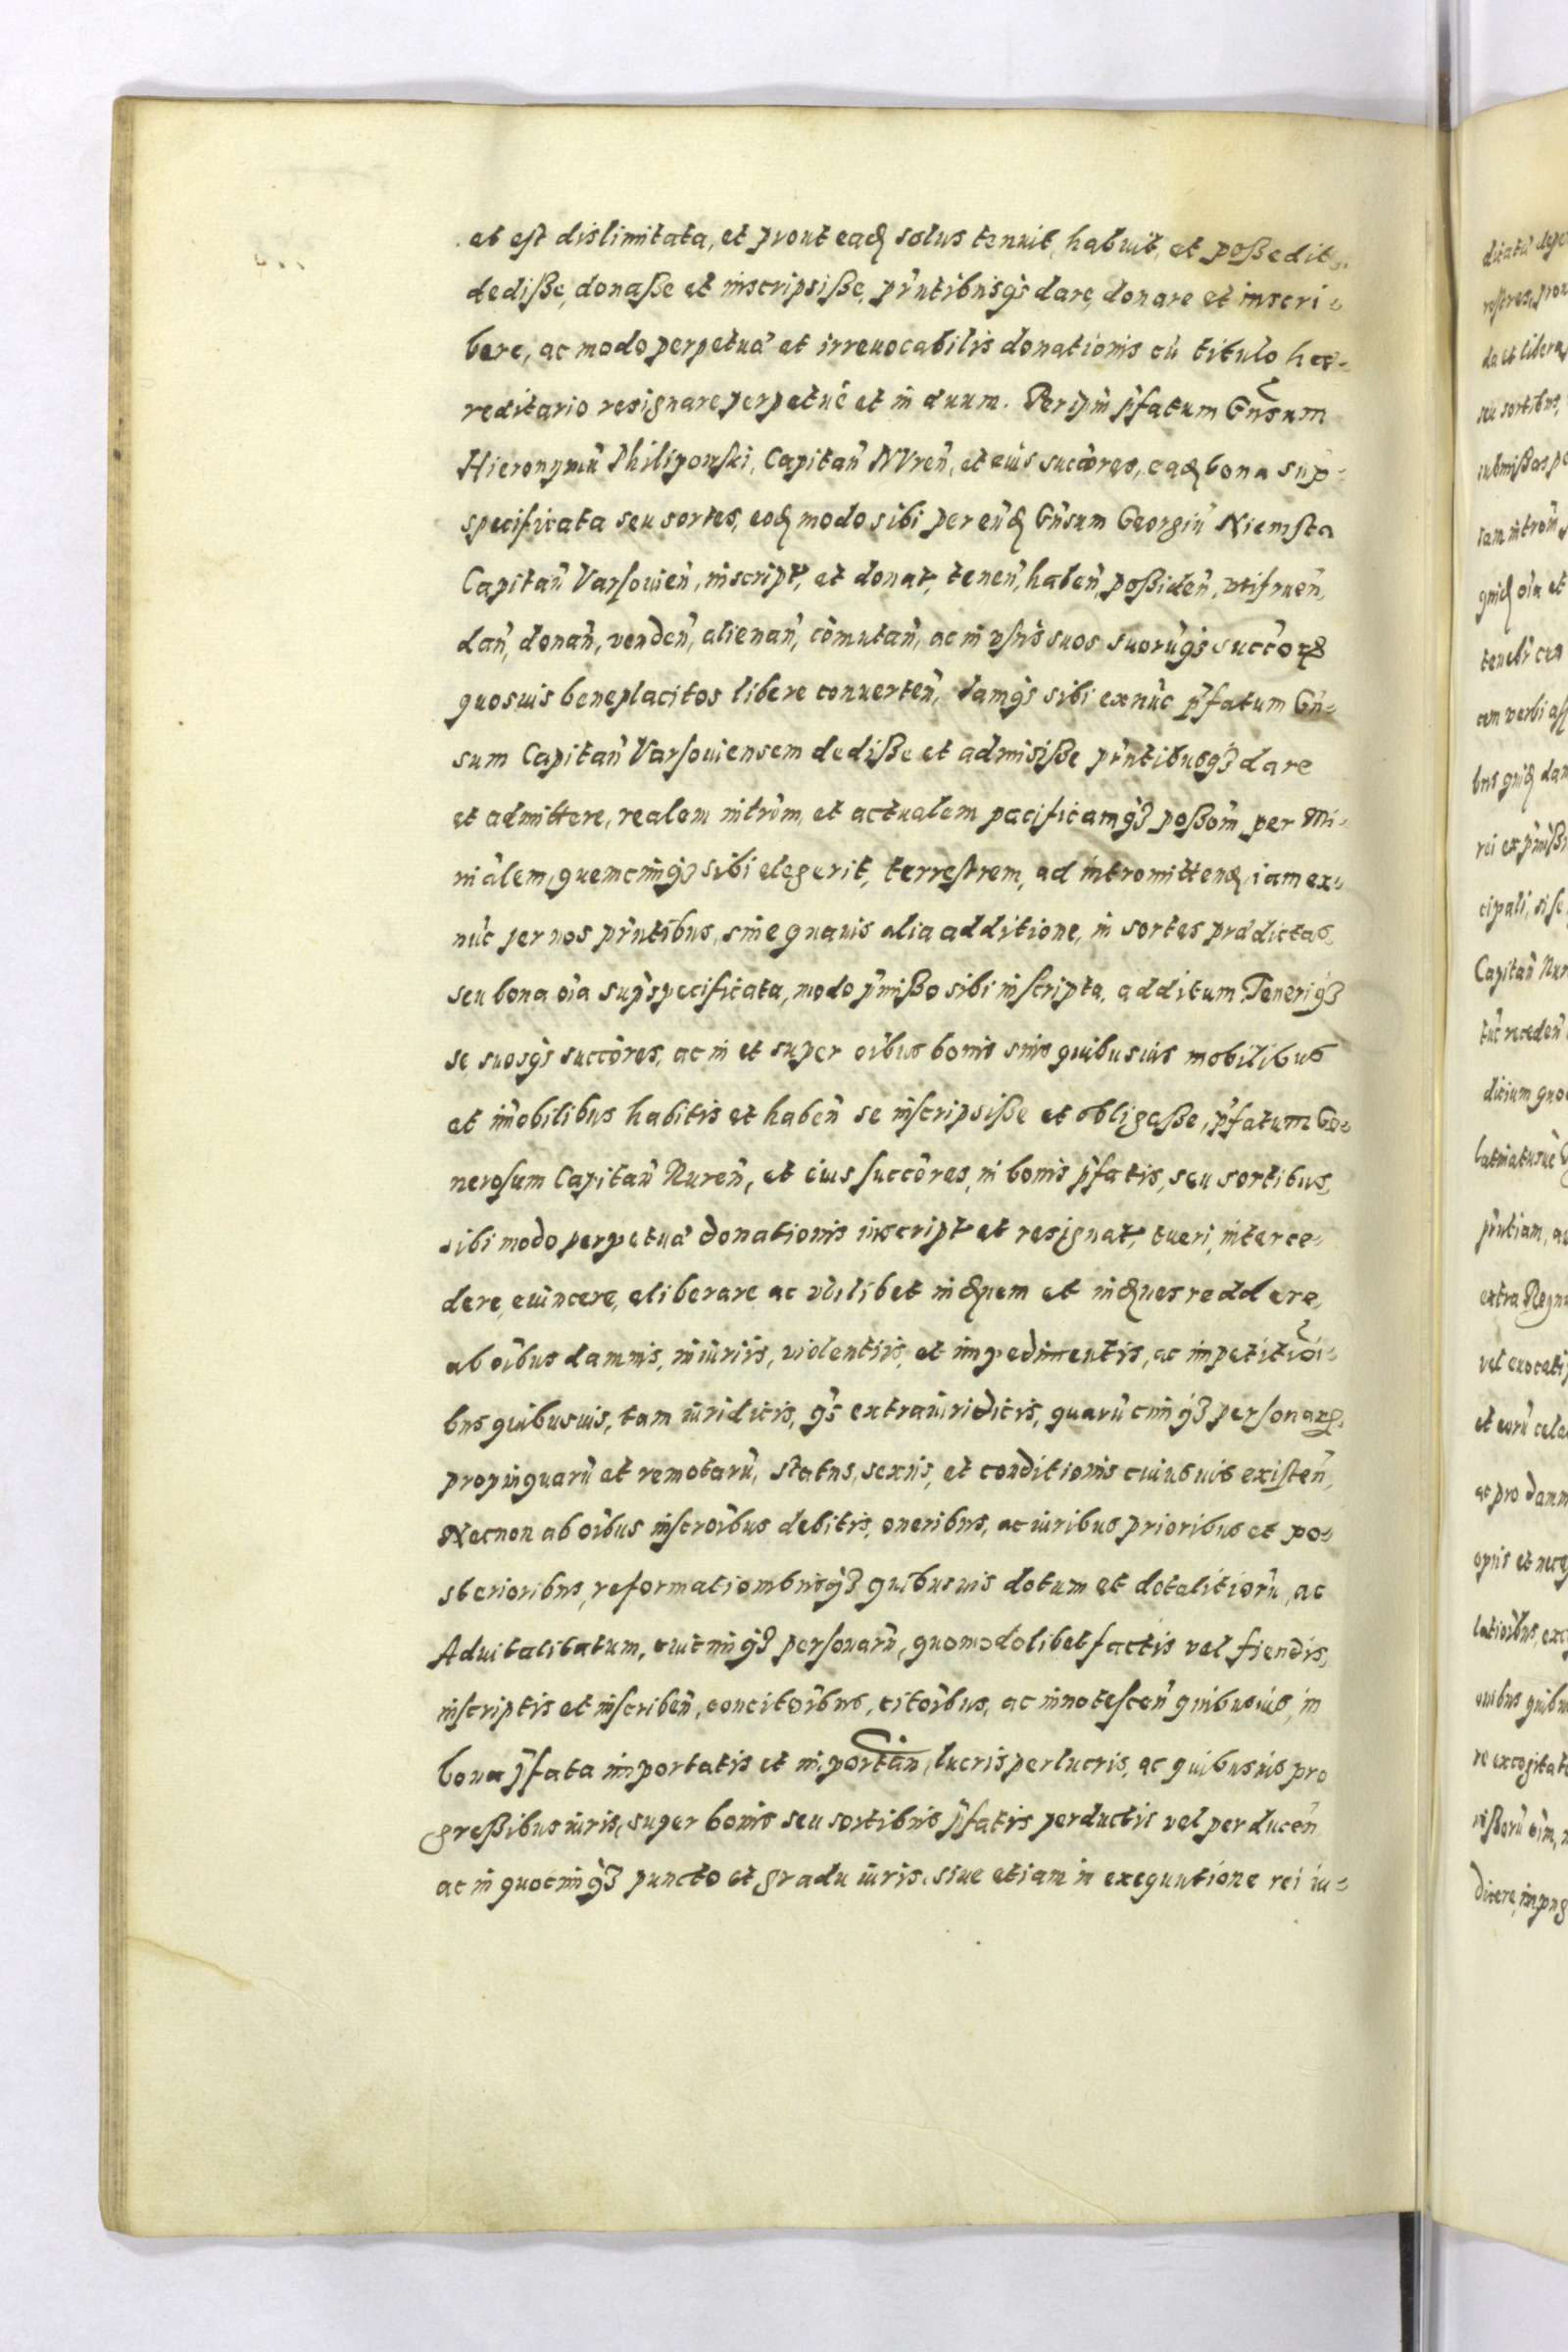 et est dislimitata, et prout eadꝫ solus tenuit, habuit, et poßedit,
dediße, donaße et inscripsiße, pr̃ntibusqꝫ dare, donare et inscri=
bere, ac modo perpetuæ et irreuocabilis donationis cũ titulo hæ=
reditario resignare perpetuè et in æuum. Per ip̃m p̃fatum Gñsum
Hieronymũ Philipowski, Capitañ NVreñ, et eius succõres, eadꝫ bona sup̃=
specificata seu sortes, eodꝫ modo sibi per eũdꝫ Gñsum Georgiũ Niemsta
Capitañ Varsouieñ, inscript, et donat, teneñ, habeñ, poßideñ, vtifrueñ,
dañ, donañ, vendeñ, alienañ, cõmutañ, ac in vsus suos suorũqꝫ succõrꝫ
quosuis beneplacitos libere conuerteñ, Iamqꝫ sibi exnũc p̃fatum Gñ=
sum Capitañ Varsouiensem dediße et admisiße pr̃ntibusqꝫ dare
et admittere, realem intrõm, et actualem pacificamqꝫ poßõm per Mi=
niãlem, quemcũnqꝫ sibi elegerit, terrestrem, ad intromittendꝫ iam ex=
nũc per nos pr̃ntibus, sine quauis alia additione, in sortes prædictas,
seu bona õia sup̃specificata, modo p̃mißo sibi inscripta, additum. Teneriqꝫ
se suosqꝫ succõres, ac in et super õibus bonis suis quibusuis mobilibus
et im̃obilibus habitis et habeñ se inscripsiße et obligaße, p̃fatum Ge=
nerosum Capitañ Nureñ, et eius succõres, in bonis p̃fatis, seu sortibus,
sibi modo perpetuæ donationis inscript et resignat, tueri, interce=
dere, euincere, eliberare ac vbilibet indꝫnem et indꝫnes reddere,
ab õibus damnis, iniuriis, violentiis, et impedimentis, ac impetitiõi=
bus quibusuis, tam iuridicis, qꝫ extraiuridicis, quarũcũnqꝫ personarꝫ,
propinquarũ et remotarũ, status, sexus, et conditionis cuiusuis existeñ,
Necnon ab õibus inscrõibus debitis, oneribus, ac iuribus prioribus et po=
sterioribus, reformationibusqꝫ quibusuis dotum et dotalitiorũ, ac
Aduitalitatum, cuicũnqꝫ personarũ, quomodolibet factis vel fiendis,
inscriptis et inscribeñ, concitõibus, citõibus, ac innotesceñ quibusuis, in
bona p̃fata importatis et importañ, lucris perlucris, ac quibusuis pro
greßibus iuris, super bonis seu sortibus p̃fatis perductis vel perduceñ
ac in quocũnqꝫ puncto et gradu iuris, siue etiam in exequutione rei iu=